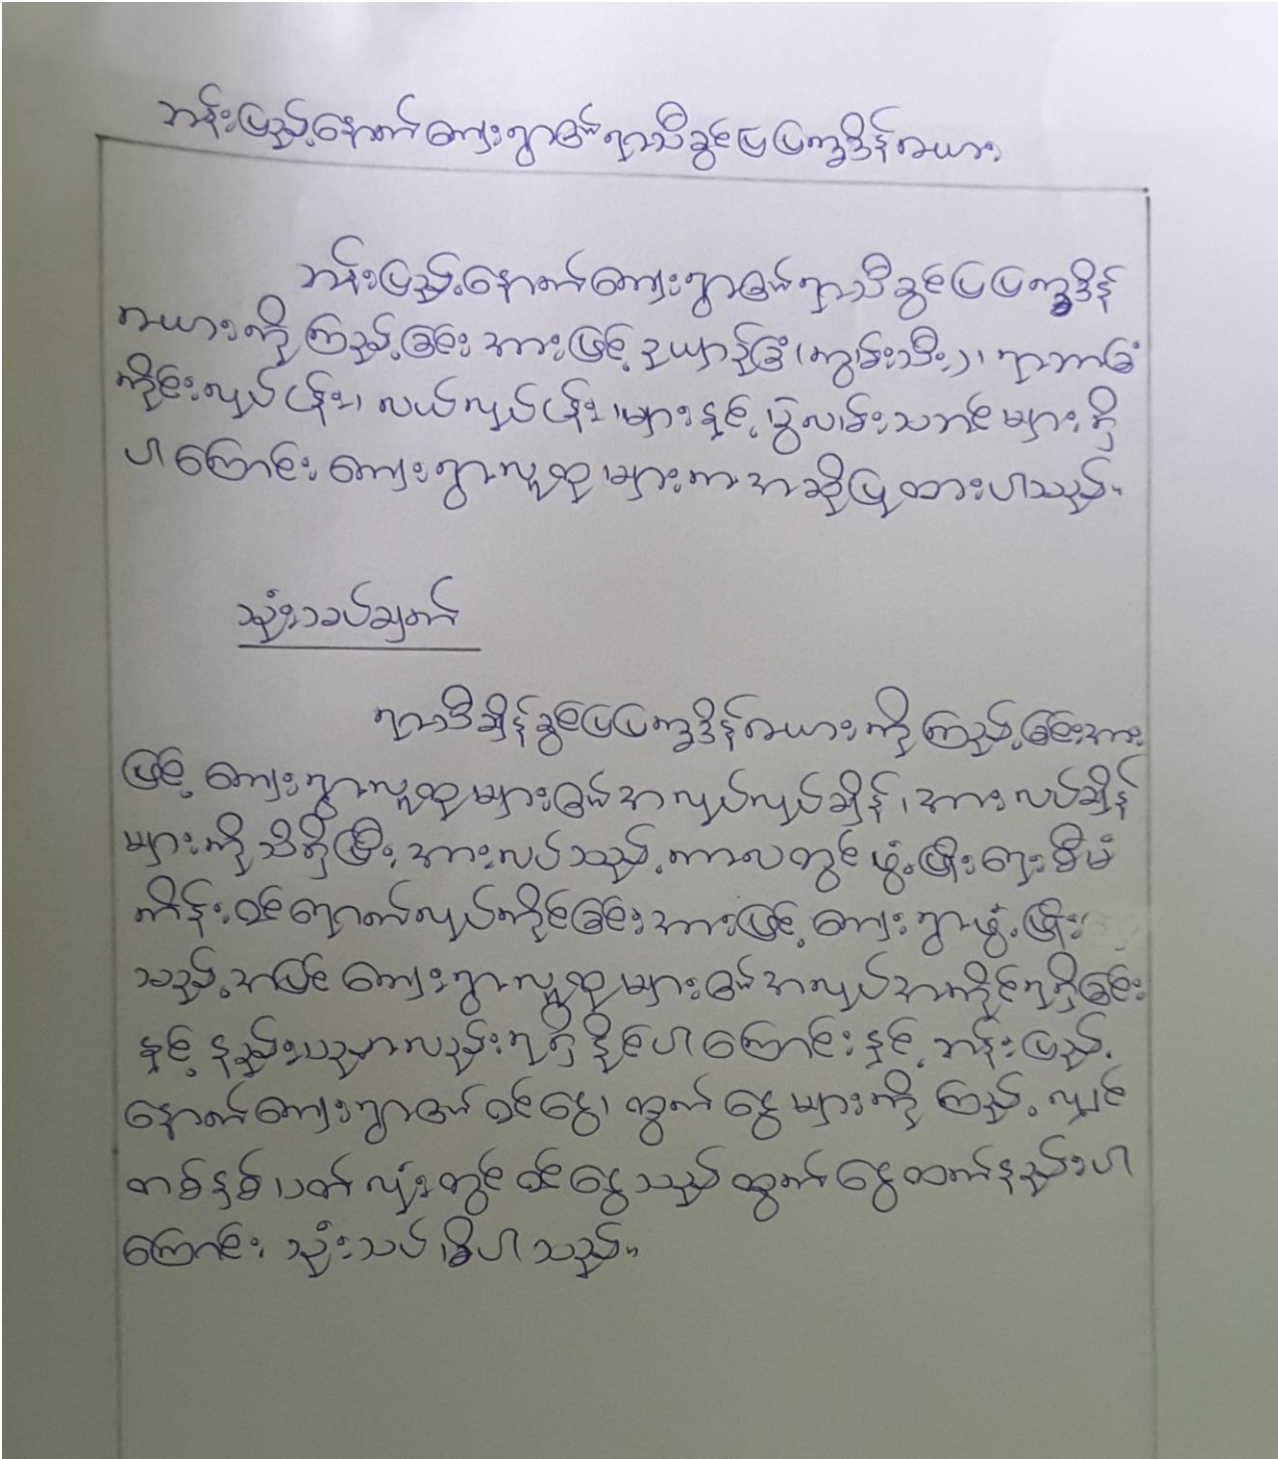 ဘန်းပြည့်နောက်ကျေးရွာ၏ရာသီခွင်ပြပြက္ခဒိန်ဇယား
ဘန်းပြည့်နောက်ကျေးရွာ၏ရာသီခွင်ပြပြက္ခဒိန်
ဇယားကိုကြည့်ခြင်းအားဖြင့်ဥယျာဉ်ခြံ(ကွမ်းသီး)၊ ရာဘာခြံ
ကိုင်းလုပ်ငန်း၊ လယ်လုပ်ငန်းများနှင့် ပွဲလမ်းသဘင်များရှိ
ပါကြောင်းကျေးရွာလူထုများကအဆိုပြုထားပါသည်။
သုံးသပ်ချက်
ရာသီချိန်ခွင်ပြပြက္ခဒိန်ဇယားကိုကြည့်ခြင်းအား
ဖြင့် ကျေးရွာလူထုများ၏အလုပ်လုပ်ချိန်၊ အားလပ်ချိန်
များကိုသိရှိပြီးအားလပ်သည့်ကာလတွင်ဖွံ့ဖြိုးရေးစီမံ
ကိန်းဝင်ရောက်လုပ်ကိုင်ခြင်းအားဖြင့်ကျေးရွာဖွံ့ဖြိုး
သည့်အပြင်ကျေးရွာလူထုများ၏အလုပ်အကိုင်ရရှိခြင်း
နှင့် နည်းပညာလည်းရရှိနိုင်ပါကြောင်းနှင့် ဘန်းပြည့်
နောက်ကျေးရွာ၏ဝင်ငွေ၊ ထွက်ငွေများကိုကြည့်လျှင်
တစ်နှစ်ပတ်လုံးတွင်ဝင်ငွေသည်ထွက်ငွေထက်နည်းပါ
ကြောင်း သုံးသပ်မိပါသည်။